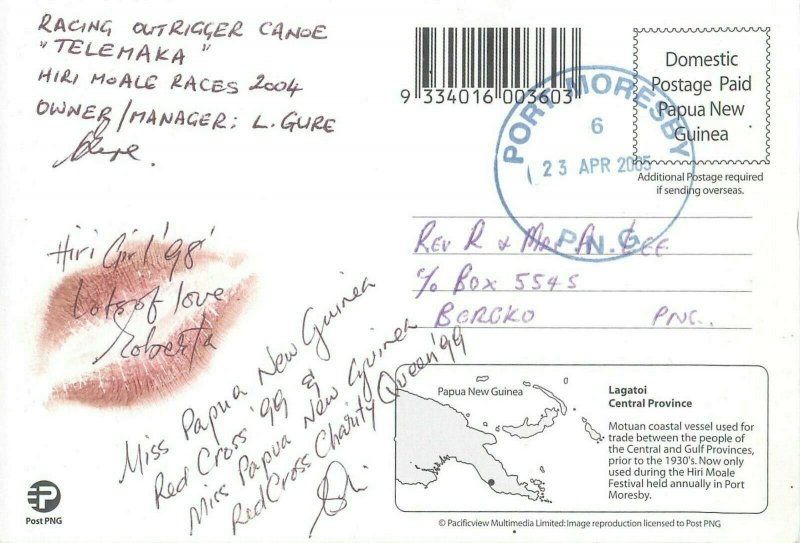 RACING OUTRIGGER CANOE
"TELEMAKA"
HIRI MOALE RACES 2004
OWNER/MANAGER: L. GURE
9 334016 003603
PORT MORESBY
6
23 APR 2005
P.N.G
Domestic
Postage Paid
Papua New
Guinea
Additional Postage required
if sending overseas.
Hiri Girl '98'
Lots of love
Roberta
REV R & MR A LEE
c/o BOX 5545
BOROKO PNG.
Miss Papua New Guinea
Red Cross '99 &
Miss Papua New Guinea
Red Cross Charity Queen '99
Papua New Guinea
Lagatoi
Central Province
Motuan coastal vessel used for
trade between the people of
the Central and Gulf Provinces,
prior to the 1930's. Now only
used during the Hiri Moale
Festival held annually in Port
Moresby.
Post PNG
© Pacificview Multimedia Limited: Image reproduction licensed to Post PNG